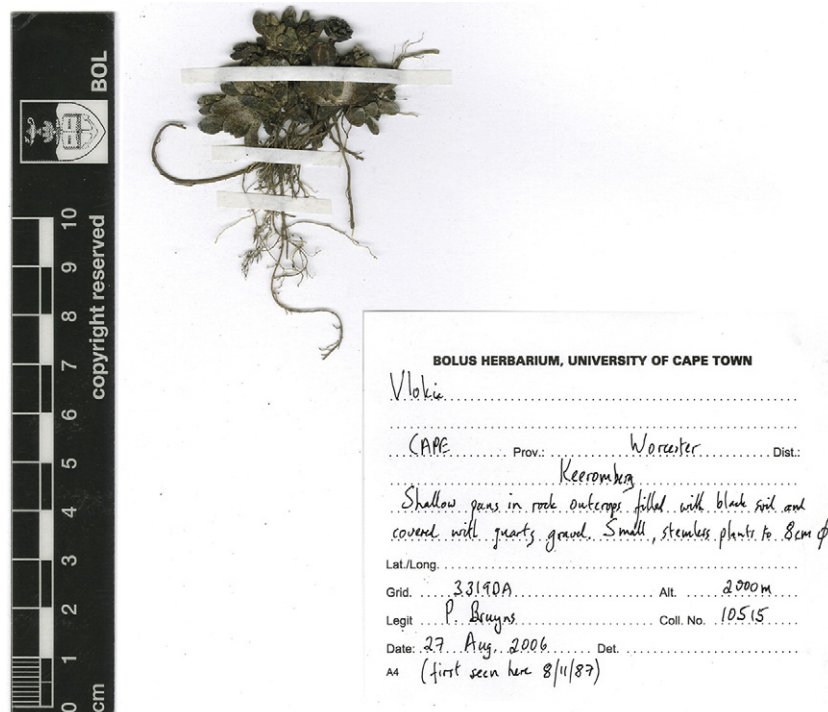 BOL
copyright reserved
10
9
8
7
6
5
4
3
2
1
0
cm
BOLUS HERBARIUM, UNIVERSITY OF CAPE TOWN
Vlokia
CAPE Prov.: Worcester Dist.:
Keeromberg
Shallow pans in rock outcrops filled with black soil and
covered with quartz gravel. Small, stemless plants to 8cm ϕ
Lat./Long.
Grid. 3319DA Alt. 2000m
Legit P. Bruyns Coll. No. 10515
Date: 27 Aug. 2006 Det.
A4 (first seen here 8/11/87)